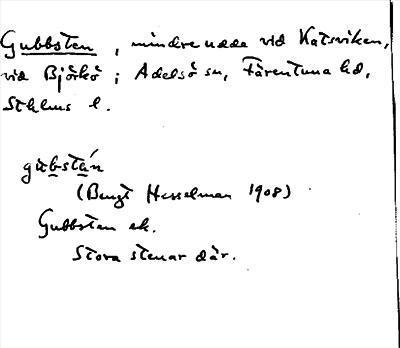 Gubbsten, mindre udde vid Kattviken,
vid Björkö; Adelsö sn, Färentuna hd,
Sthlms l.
gub-stén
(Bengt Hesselman 1908)
Gubbsten ek.
Stora stenar där.